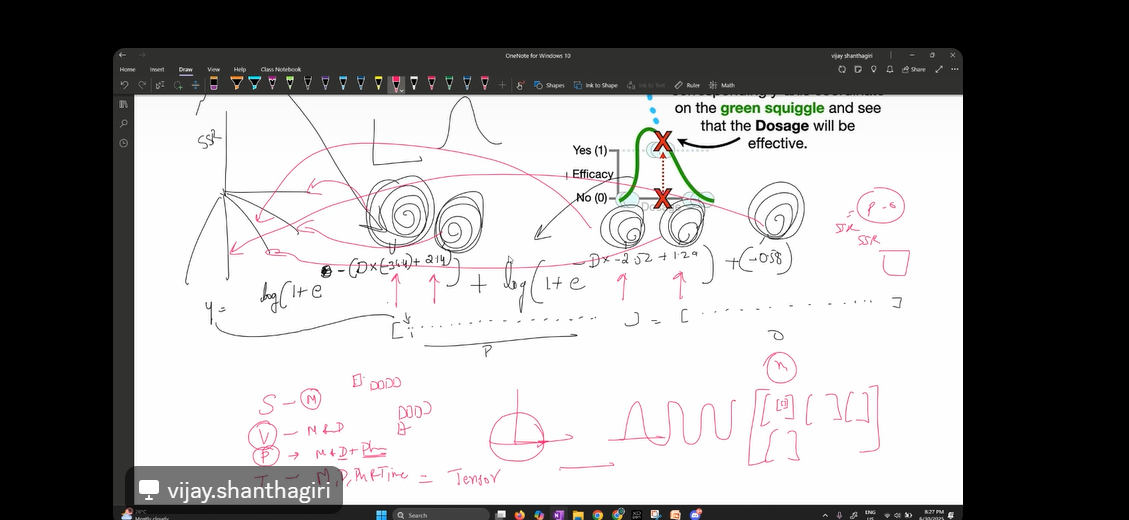 OneNote for Windows 10
vijay shanthagiri
Home Insert Draw View Help Class Notebook
Share
Shapes Ink to Shape Ink to Text Ruler Math
on the green squiggle and see
that the Dosage will be
effective.
Yes (1)
Efficacy
No (0)
SSR
P - O
SSR
SSR
y = log(1+e -(D×(-3.44)+2.14)) + log(1+e -D×-2.52+1.29) + (-0.58)
[ ] = [ ]
P
O
n
S - M
V - M & D
P → M & D + Ph
T - M, D, Ph & Time = Tensor
vijay.shanthagiri
Mostly cloudy
Search
ENG
8:27 PM
6/10/2025